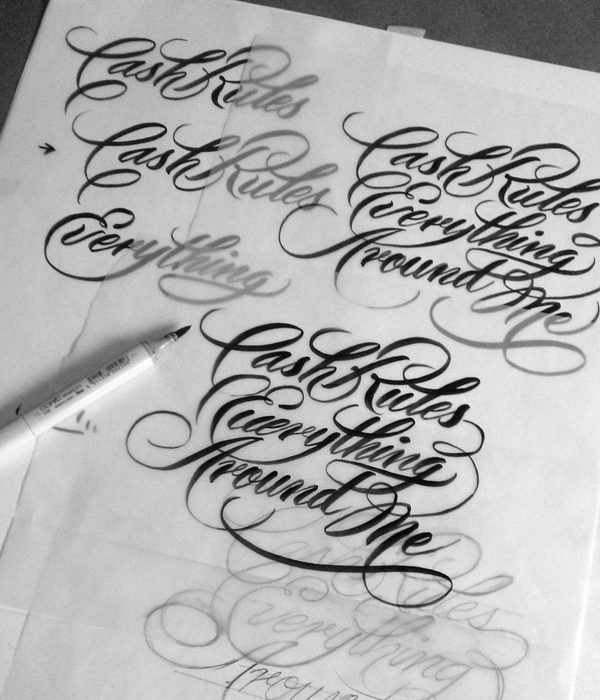 Cash Rules
Cash Rules
Everything
Cash Rules
Everything
Around Me
Cash Rules
Everything
Around Me
Cash Rules
Everything
Around